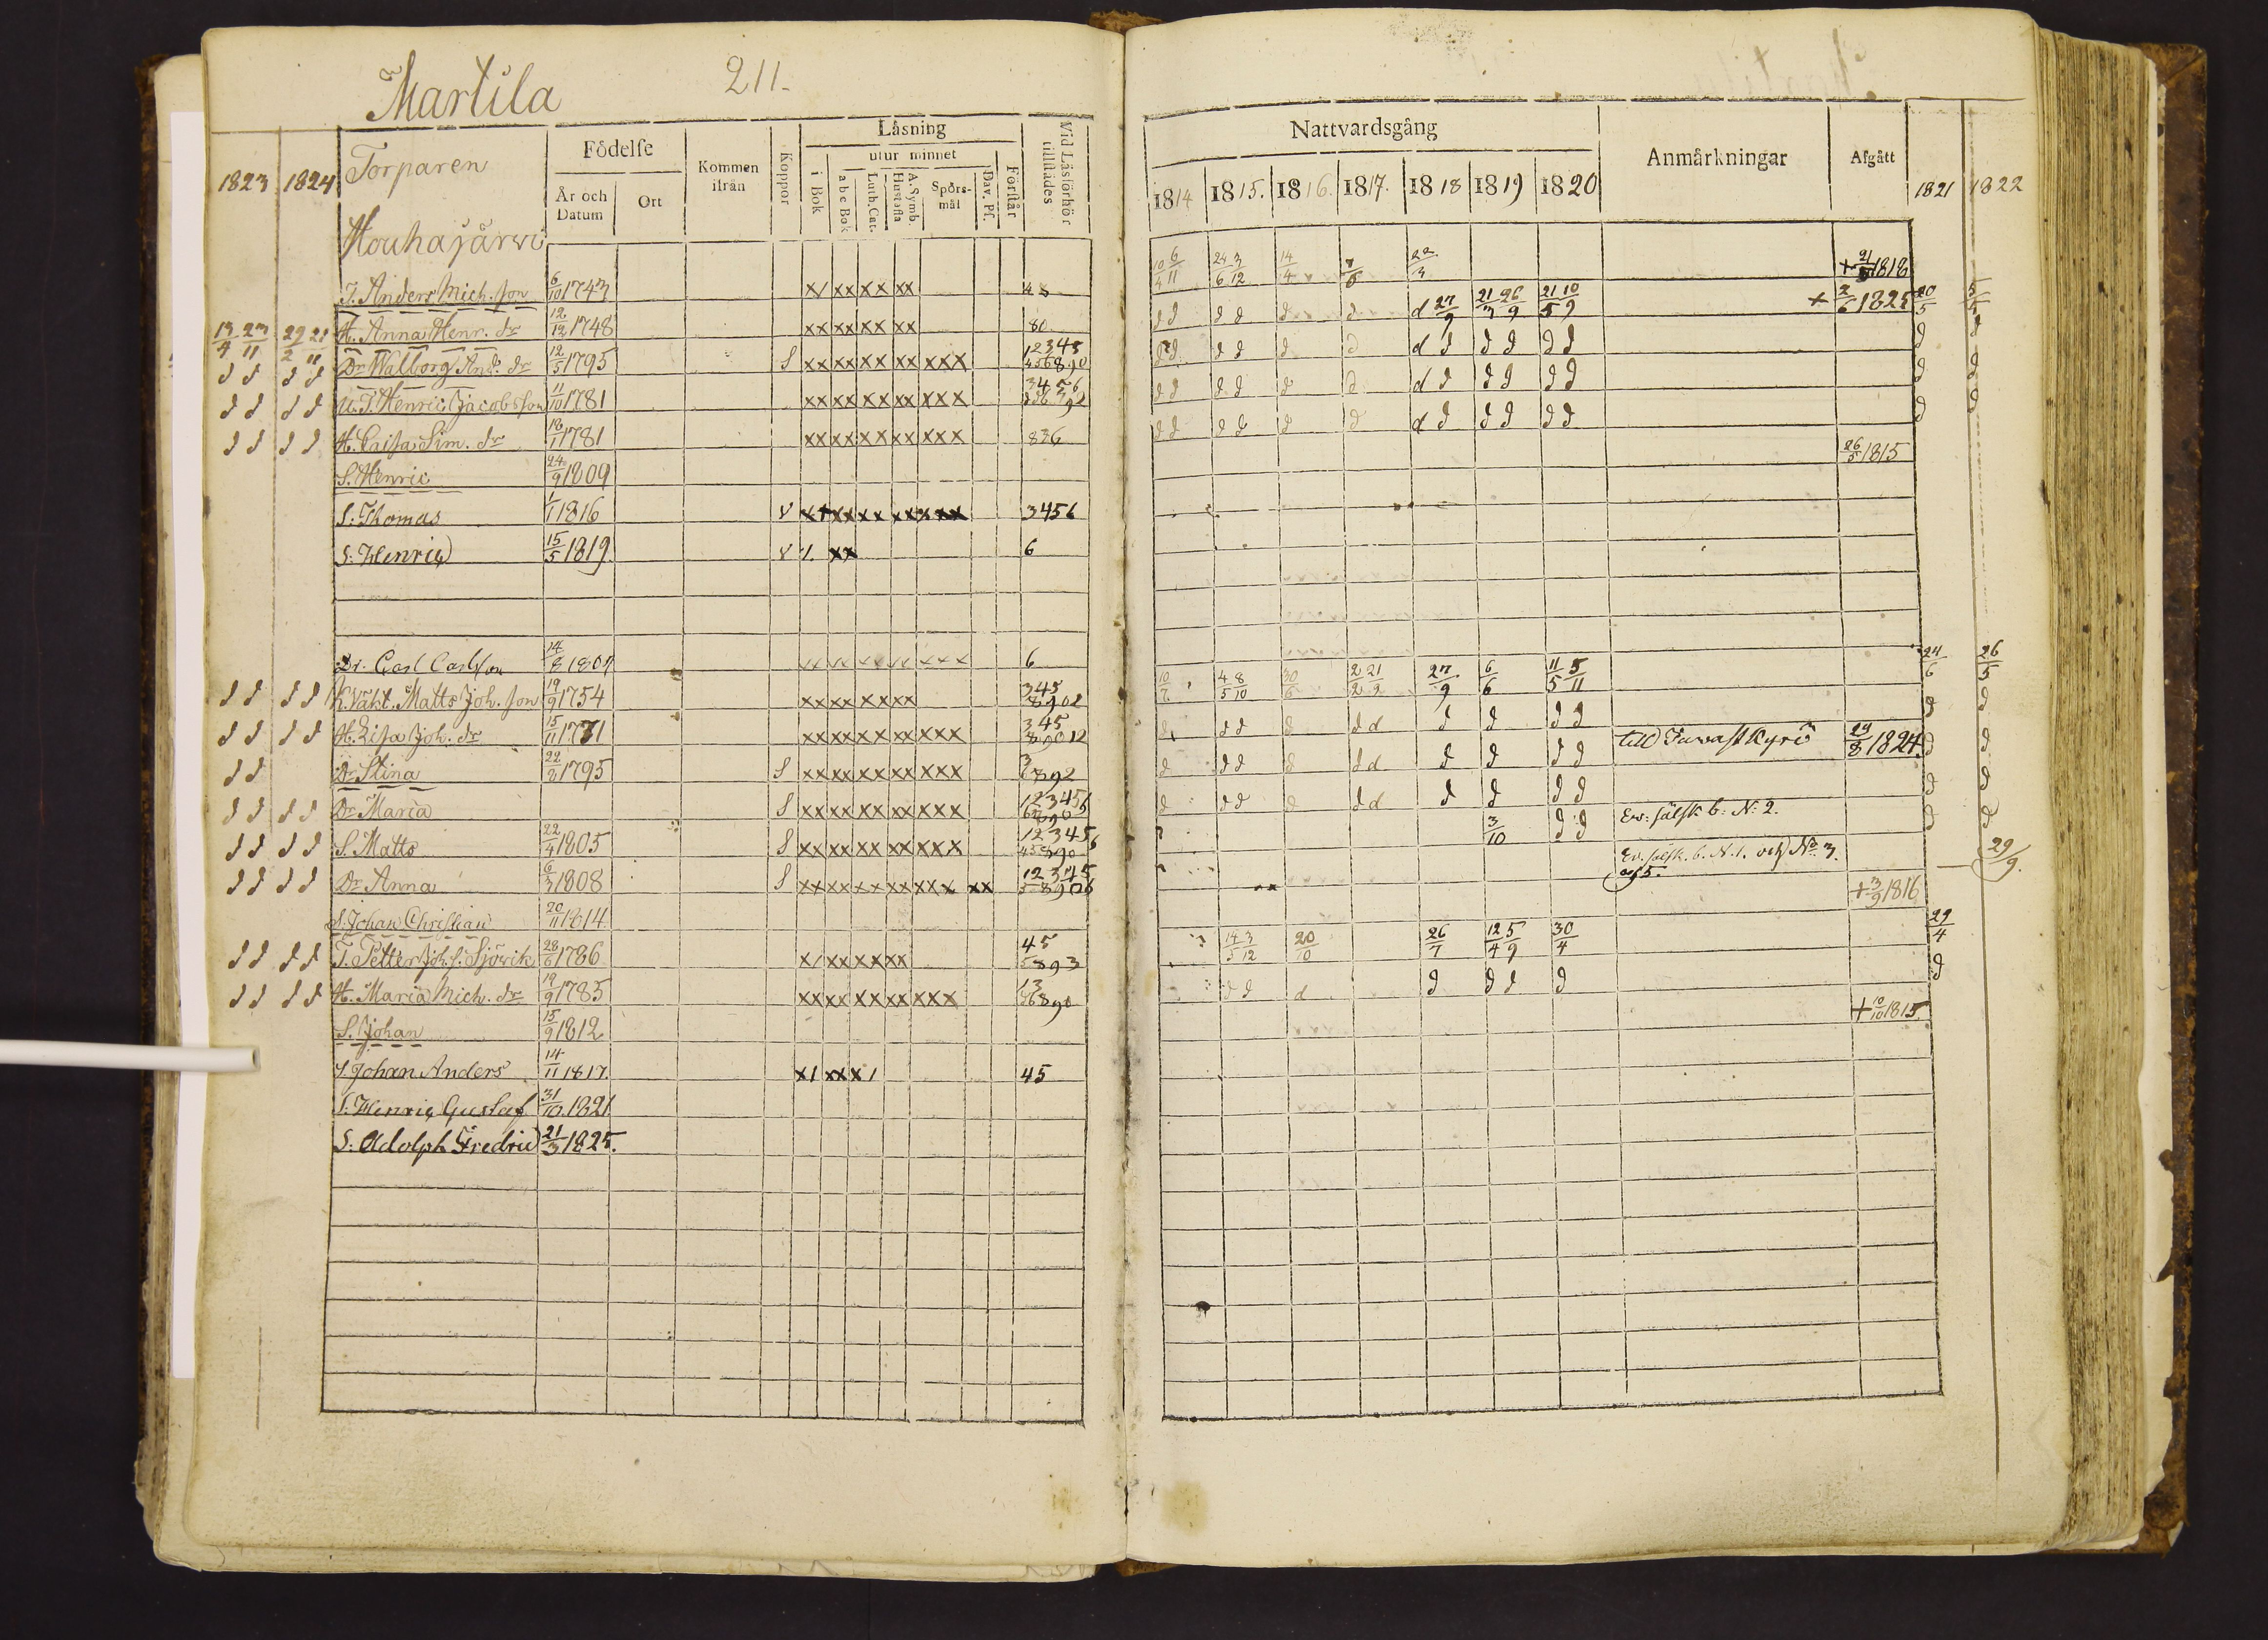 Martila 211.
1823 1824 Torparen Födelse Kommen ifrån Koppor Läsning Vid Läsförhör tillstädes
År och Datum Ort i Bok utur minnet a b c Bok Luth. Cat. Hustafla A. Symb. Spörs-mål Dav. Ps. Förstår
Houhajärwi
T. Anders Mich. son 6/10 1743 x/ xx xx xx
13/4 23/11 29/2 21/11 H. Anna Henr. dr 12/12 1748 xx xx xx xx 80
d d d d Dr Walborg And. dr 12/5 1795 S xx xx xx xx xxx 12345
d d d d Henric Jacobsson 11/10 1781 xx xx xx xx xxx 3456
d d d d H. Caisa Sim. dr 18/1 1781 xx xx xx xx xxx 836
S. Henric 24/9 1809
S. Thomas 1/1 1816 xx xx xx xxxxx 3456
S: Henric 15/5 1819 xx 6
Dr. Carl Carlsson 14/8 1807 xx xx xx xx xxx 6
d d d d Matts Joh. son 19/9 1754 xx xx xx xx 345 8902
d d d d H. Lisa Joh. dr 15/11 1771 xx xx xx xx xxx 345 89012
d d Dr Stina 22/8 1795 S xx xx xx xx xxx
d d d d Dr Maria S xx xx xx xx xxx 123456
d d d d S. Matts 22/4 1805 S xx xx xx xx xxx 123456
d d d d Dr Anna 6/3 1808 S xx xx xx xx xxx xx 12345
S. Johan Christian 20/11 1814
d d d d T. Petter Joh. s. Sjöwik 28/6 1786 x/ xx xx xx 45 5893
d d d d H. Maria Mich. dr 19/9 1785 xx xx xx xx xxx 13
S. Johan 15/9 1812
S. Johan Anders 14/11 1817. x/ xx x/ 45
S. Henric Gustaf 31/10 1821
S: Adolph Fredric 21/3 1825.
Nattvardsgång Anmärkningar Afgått
1814 1815. 1816. 1817. 1818 1819 1820 1821 1822
10/4 6/11 24/6 3/12 14/4 22/3 + 21/5 1818
d d d d d d d 27/9 21/3 26/9 21/5 10/9 + 2/6 1825 20/5 5/5
d d d d d d d d d d d d d d
d d d d d d d d d d d d d d
d d d d d d d d d d d d d d
26/5 1815
10/7 4/5 8/10 30/6 2/2 21/9 27/9 6/6 11/5 5/11 24/6 26/5
d d d d d d d d d d d d
d d d d d d d d d d till Tavast Kyrö 24/8 1824 d d
d d d d d d d d d d d d
3/10 d d Ew. sälsk b: N: 2. d d
Ew. sälsk. b. N. 1. och No 3. och 5. 29/9.
+ 3/9 1816
14/5 3/12 20/10 26/7 12/4 5/9 30/4 29/4
d d d d d d d d
+ 10/10 1815.